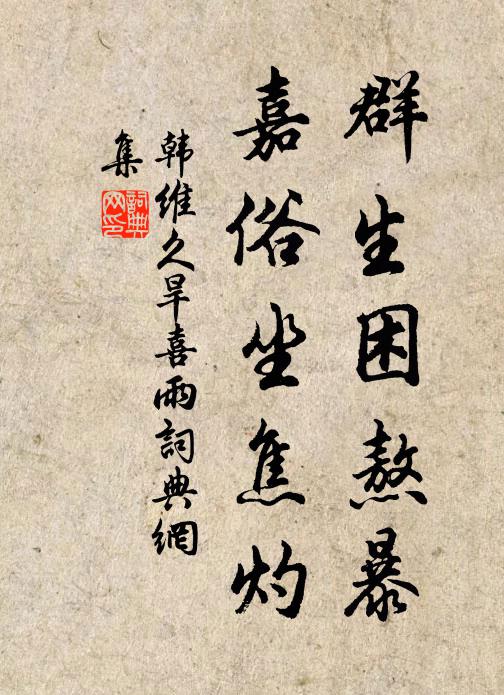 群生困熬暴
嘉俗坐焦灼
韩维久旱喜雨詞典網
集
詞典网印